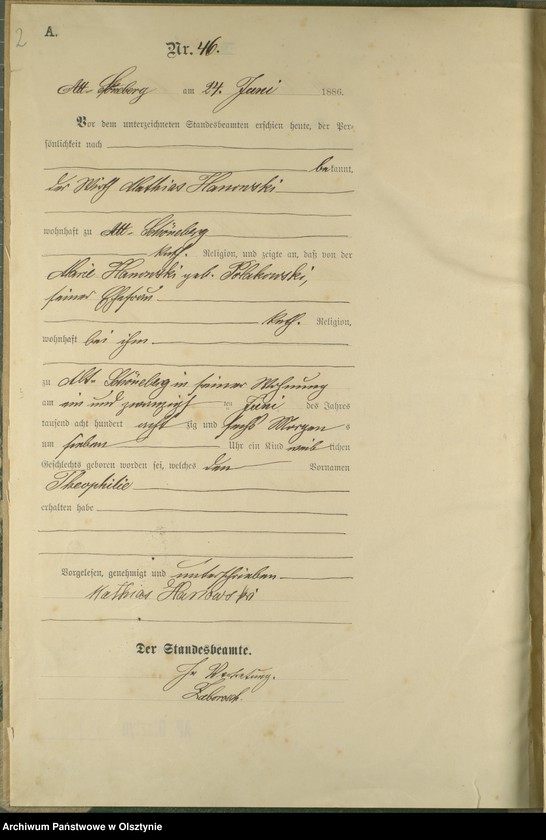 2
A.
Nr. 46.
Alt-Schöneberg am 24. Juni 1886.
Vor dem unterzeichneten Standesbeamten erschien heute, der Per-
sönlichkeit nach
bekannt,
der Wirth Mathias Hanowski
wohnhaft zu Alt-Schöneberg
kath. Religion, und zeigte an, daß von der
Marie Hanowski geb. Polakowski,
seiner Ehefrau
kath. Religion,
wohnhaft bei ihm
zu Alt-Schöneberg in seiner Wohnung
am ein und zwanzigsten Juni des Jahres
tausend acht hundert acht zig und sechs Morgens
um sieben Uhr ein Kind weib lichen
Geschlechts geboren worden sei, welches den Vornamen
Theophilie
erhalten habe
Vorgelesen, genehmigt und unterschrieben
Mathias Hanowski
Der Standesbeamte.
In Vertretung.
Archiwum Państwowe w Olsztynie